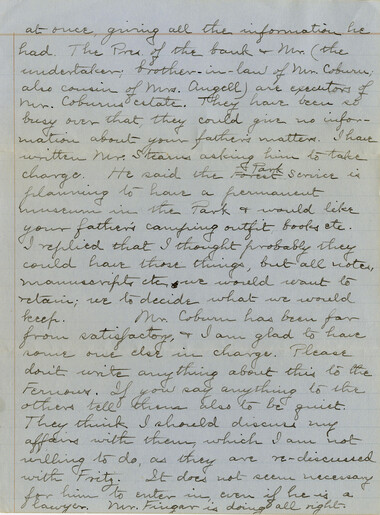 at once, giving all the information he
had. The Pres. of the bank & Mr. (the
undertaker; brother-in-law of Mr. Coburn;
also cousin of Mrs. Angell) are executors of
Mr. Coburn's estate. They have been so
busy over that they could give no infor-
mation about your father's matters. I have
written Mr. Stearns asking him to take
charge. He said the Park Service is
planning to have a permanent
museum in the Park & would like
your father's camping outfit books etc.
I replied that I thought probably they
could have those things, but all notes,
manuscripts etc. we would want to
retain; we to decide what we would
keep. Mr. Coburn has been far
from satisfactory, & I am glad to have
some one else in charge. Please
don't write anything about this to the
If you say anything to the
others tell them also to be quiet.
They think I should discuss my
affairs with them, which I am not
willing to do, as they are re-discussed
with Fritz. It does not seem necessary
for him to enter in, even if he is a
lawyer. Mr. Fingar is doing all right.